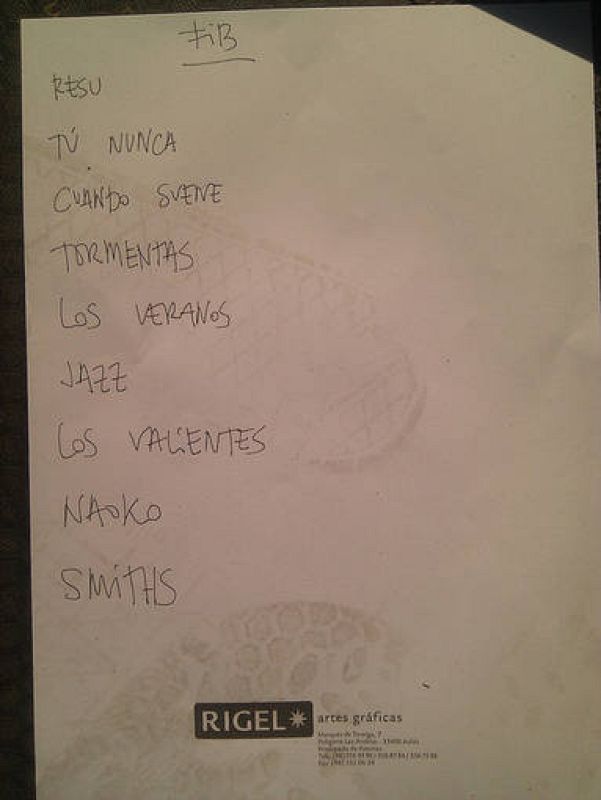 FiB
RESU
TÚ NUNCA
CUANDO SUENE
TORMENTAS
LOS VERANOS
JAZZ
LOS VALiENTES
NAOKO
SMiTHS
RIGEL artes gráficas